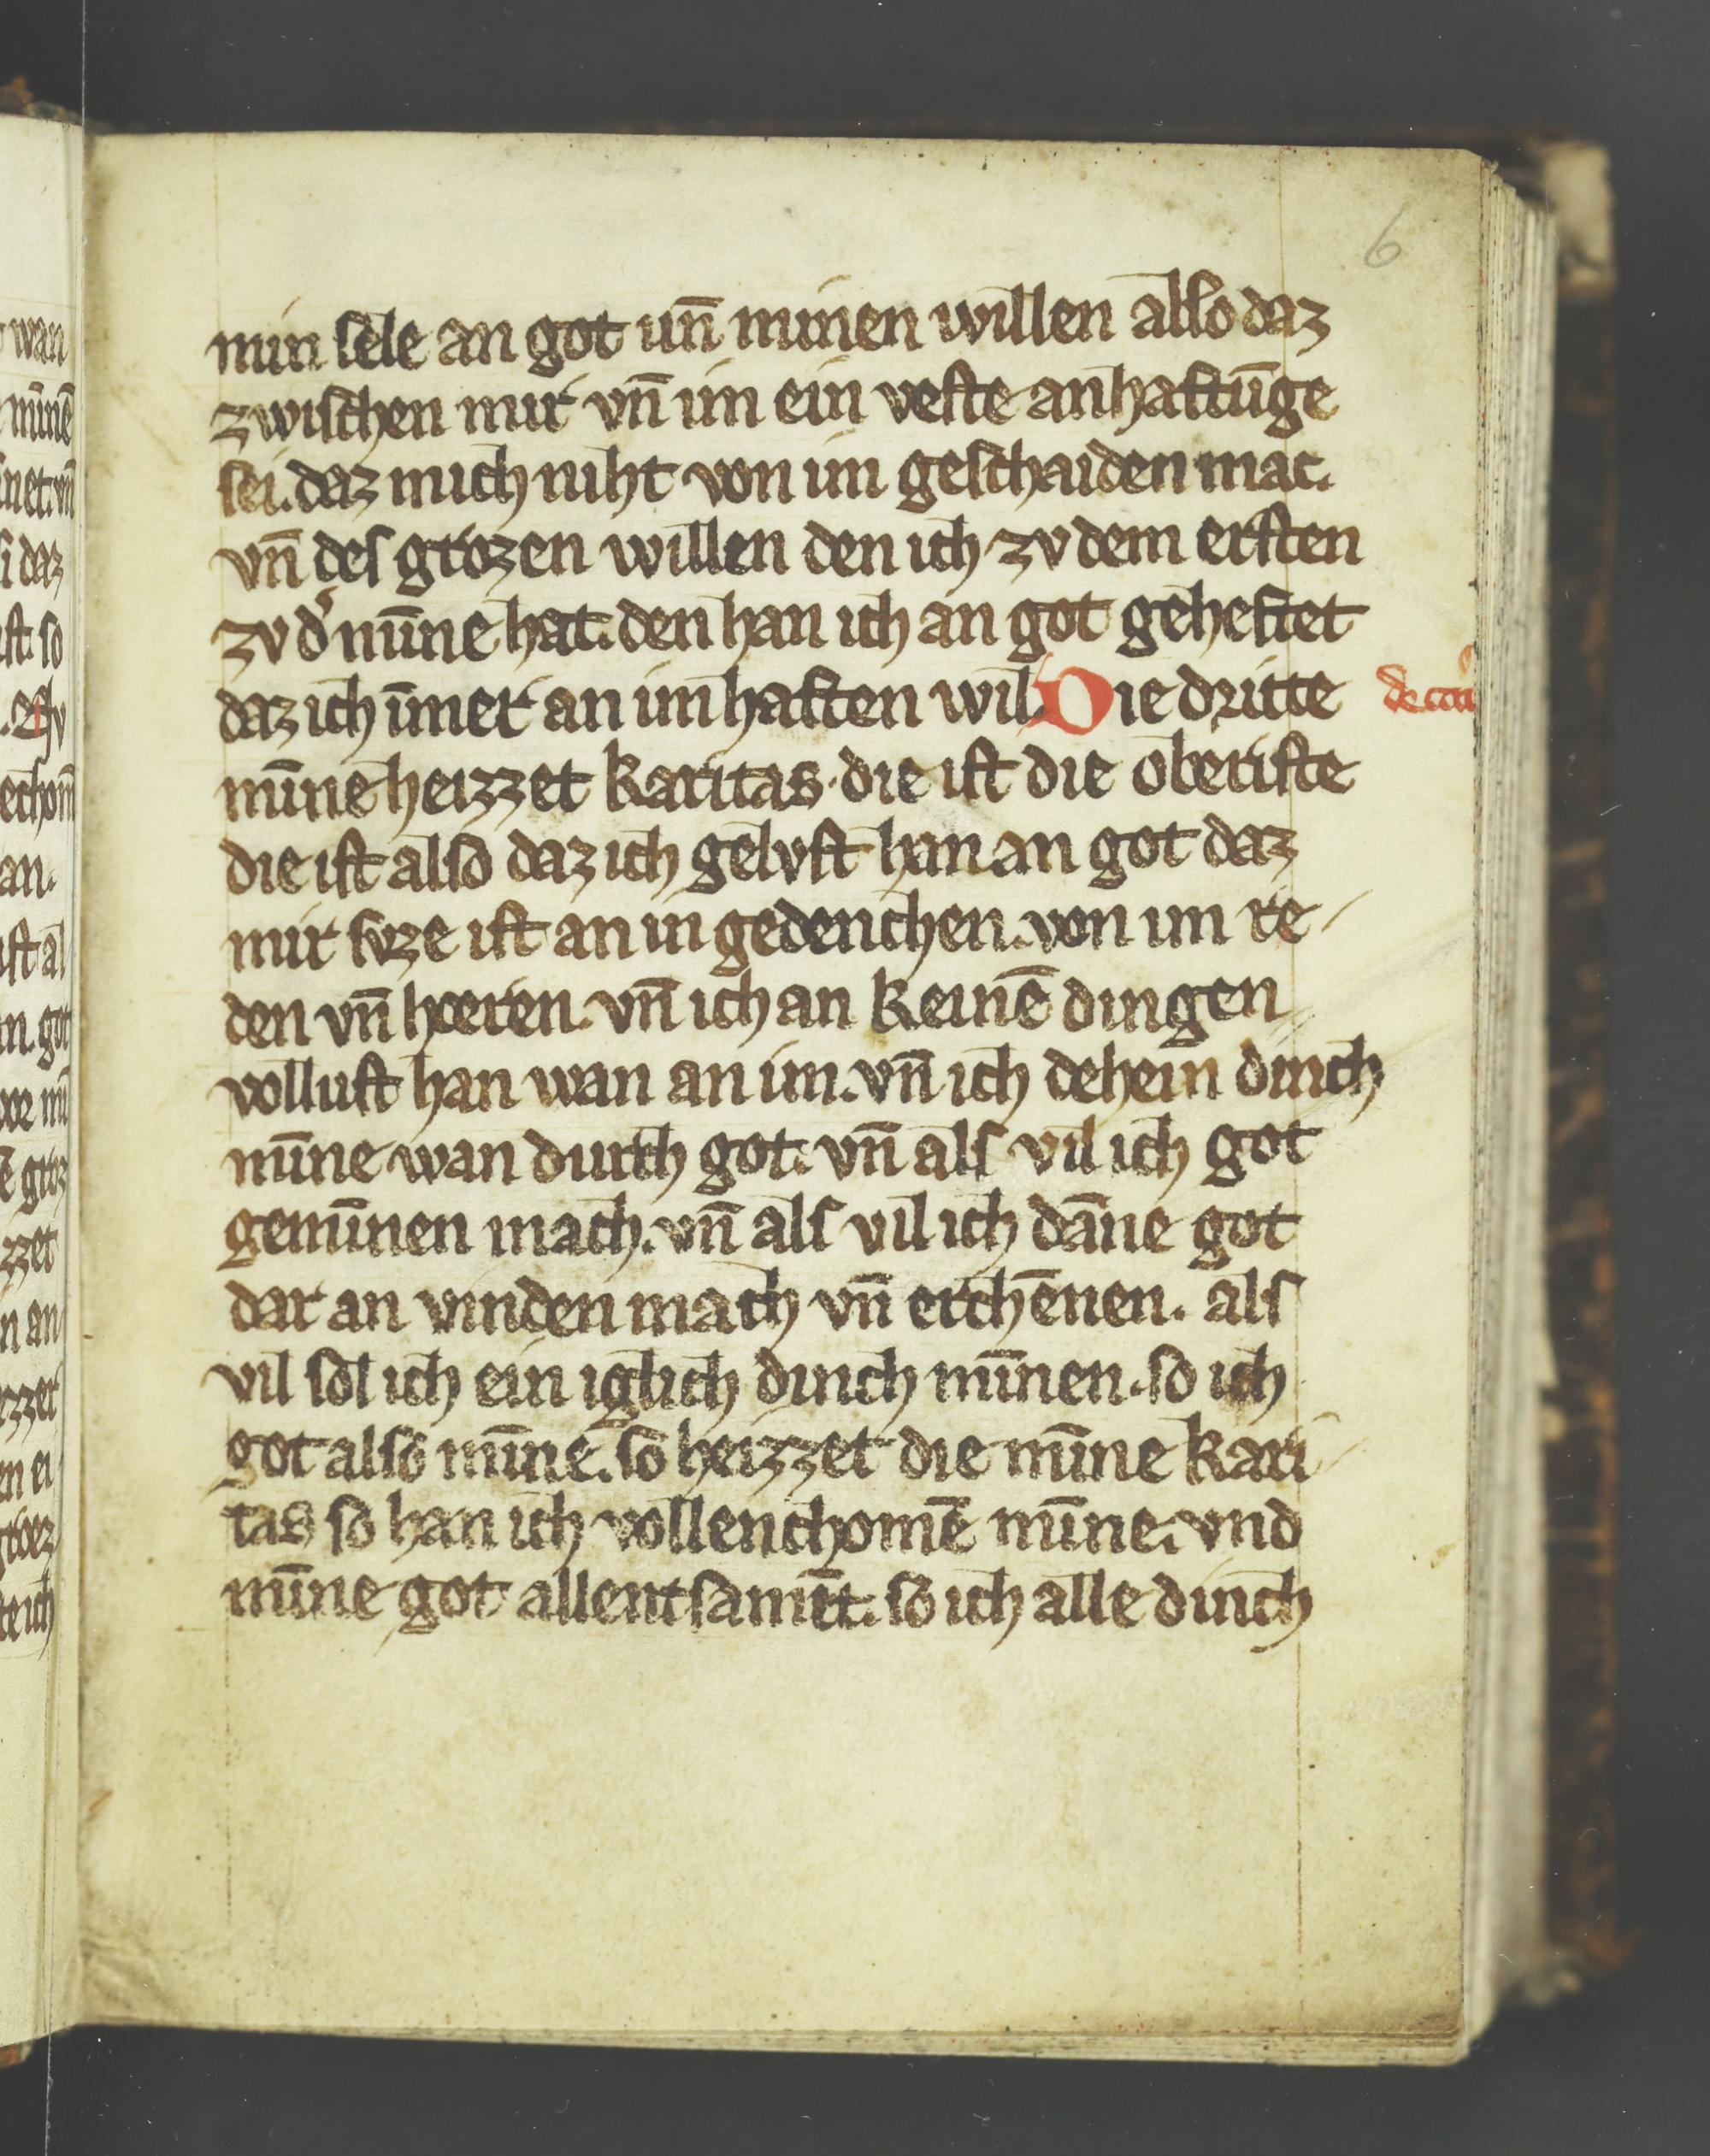 6
min sele an got un̄ minen willen also daz
zwischen mir vn̄ im ein veste anhaftūge
sei. daz mich niht von im geschaiden mac.
vn̄ des grozen willen den ich zv dem ersten
zv d̓ mīne hat. den han ich an got geheftet
daz ich īmer an im haften wil. Die dritte
mīne heizzet karitas. die ist die oberiste
die ist also daz ich gelvst han an got daz
mir svze ist an in gedenchen. von im re-
den vn̄ hœren. vn̄ ich an keinē dingen
vollust han wan an im. vn̄ ich dehein dinch
mīne wan durch got. vn̄ als vil ich got
gemīnen mach. vn̄ als vil ich dāne got
dar an vinden mach vn̄ erchēnen. als
vil sol ich ein iglich dinch mīnen. so ich
got also mīne. so heizzet die mīne kari-
tas so han ich vollenchomē mīne. vnd
mīne got allentsamēt. so ich alle dinch